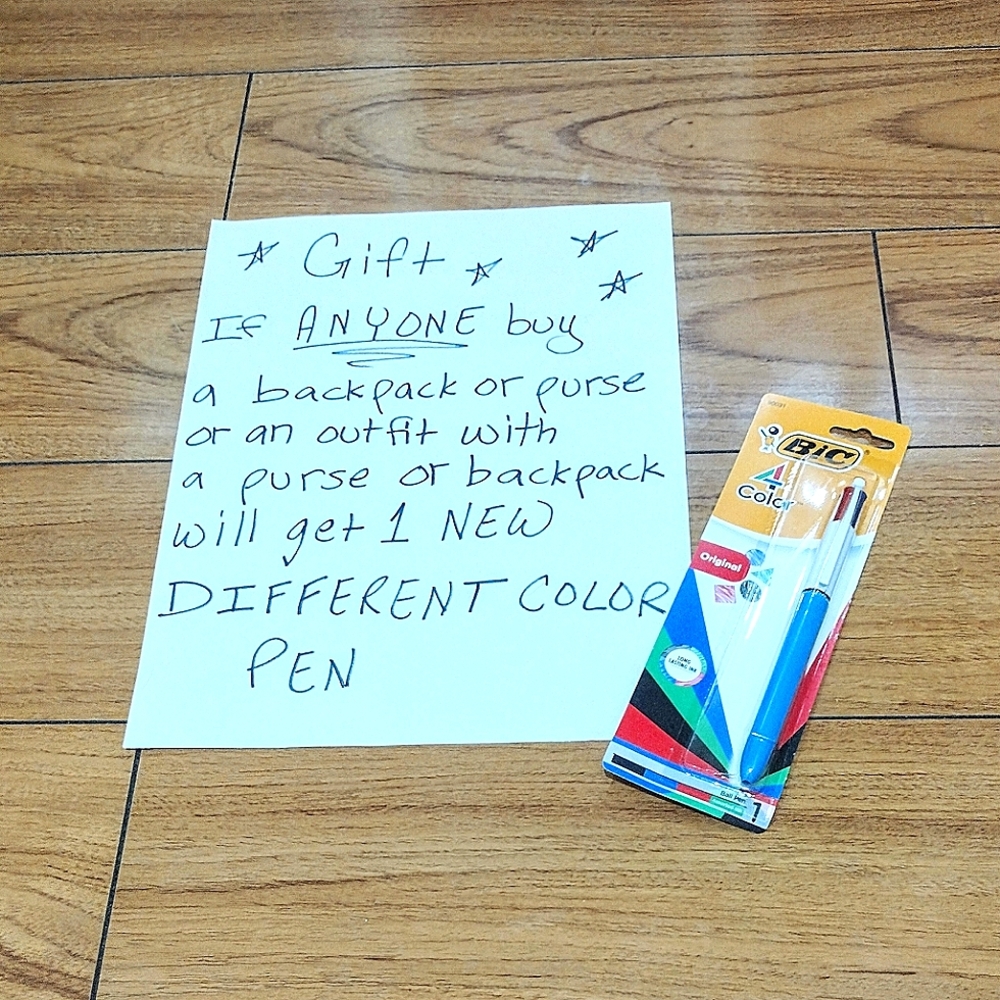 Gift
If ANYONE buy
a backpack or purse
or an outfit with
a purse or backpack
will get 1 NEW
DIFFERENT COLOR
PEN
BIC
4
Color™
Original
LONG
LASTING INK
Ball Pen
1